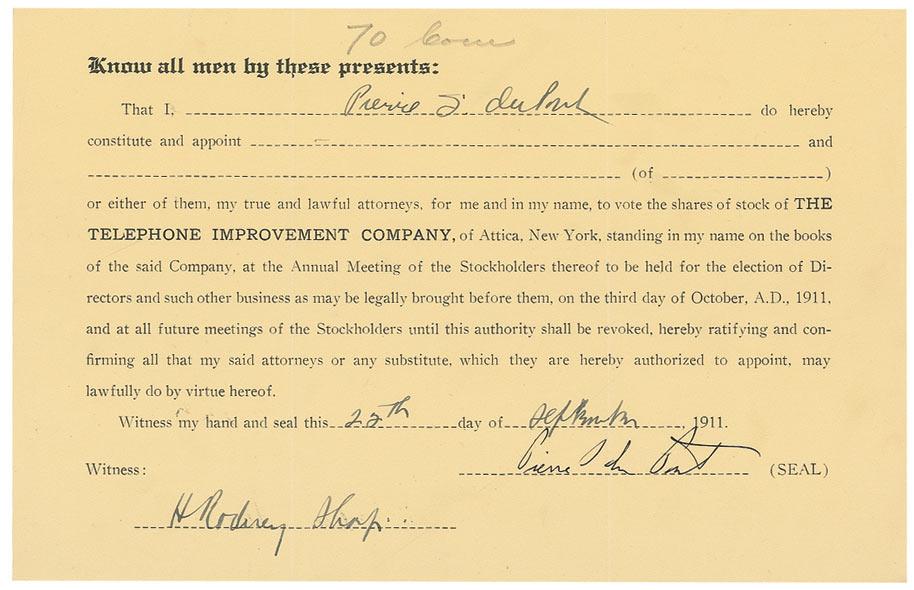 70 Com
Know all men by these presents:
That I, Pierre S duPont do hereby
constitute and appoint and
(of )
or either of them, my true and lawful attorneys, for me and in my name, to vote the shares of stock of THE
TELEPHONE IMPROVEMENT COMPANY, of Attica, New York, standing in my name on the books
of the said Company, at the Annual Meeting of the Stockholders thereof to be held for the election of Di-
rectors and such other business as may be legally brought before them, on the third day of October, A.D., 1911,
and at all future meetings of the Stockholders until this authority shall be revoked, hereby ratifying and con-
firming all that my said attorneys or any substitute, which they are hereby authorized to appoint, may
lawfully do by virtue hereof.
Witness my hand and seal this 22th day of September, 1911.
Witness: Pierre S du Pont (SEAL)
H Rodney Sharp